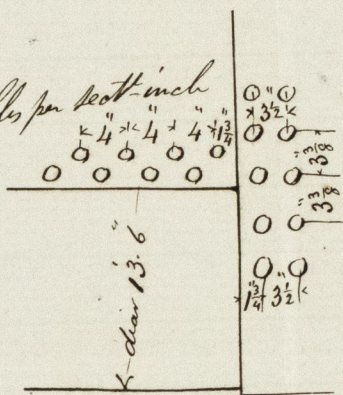 lbs per sectl inch
4" 4" 4" 1 3/4"
3 1/2"
3 3/8"
3 3/8"
1 3/4" 3 1/2"
diar 13.6"